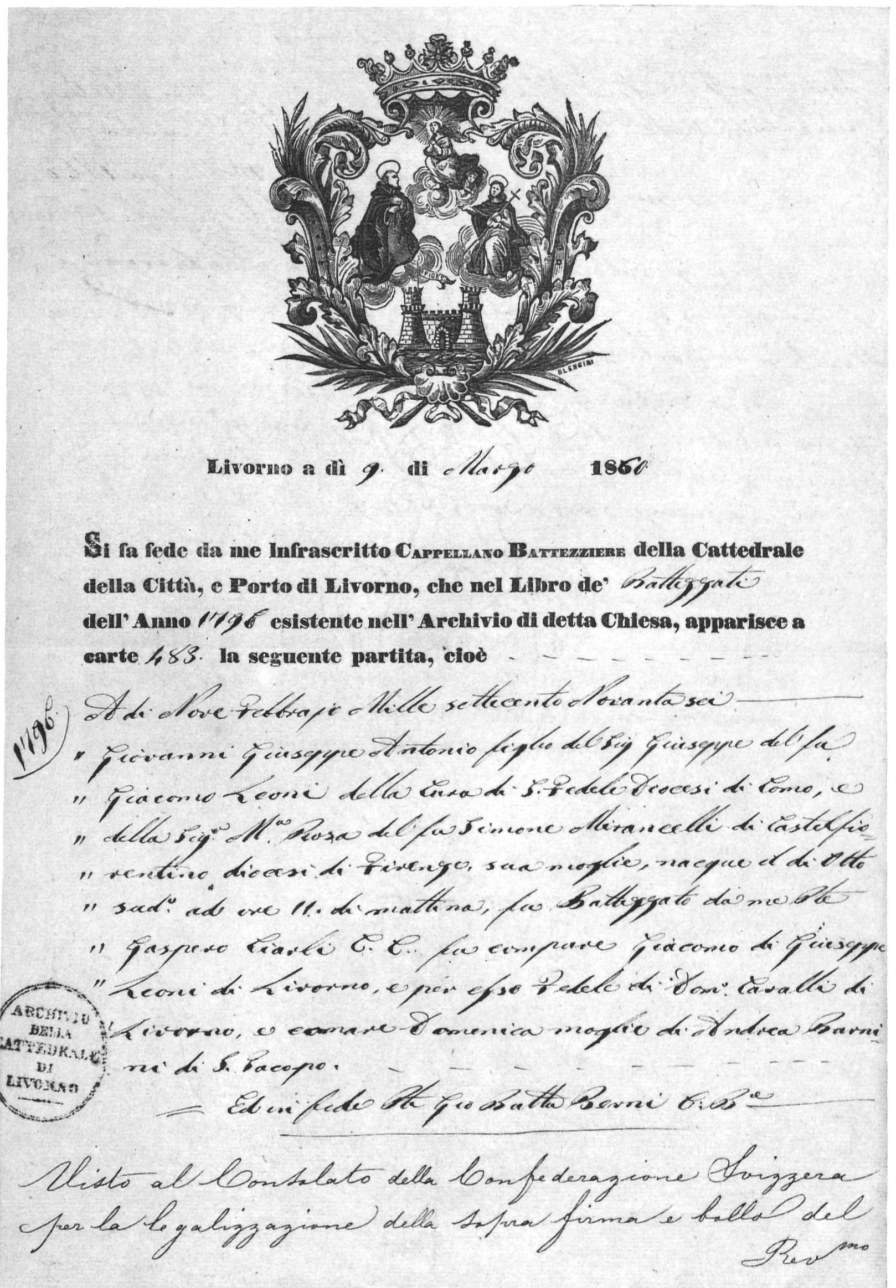 BLENGINI
Livorno a dì 9. di Marzo 1860
Si fa fede da me Infrascritto CAPPELLANO BATTEZZIERE della Cattedrale
della Città, e Porto di Livorno, che nel Libro de' Battezzati
dell' Anno 1796 esistente nell' Archivio di detta Chiesa, apparisce a
carte 483. la seguente partita, cioè
1796.
A di Nove Febbrajo Mille settecento Novanta sei
" Giovanni Giuseppe Antonio figlio del Sig Giuseppe del fu
" Giacomo Leoni della Cura di S. Fedele Diocesi di Como, e
" della Sigra Ma. Rosa del fu Simone Mirancelli di Castelfio-
" rentino diocesi di Firenze, sua moglie, nacque il di Otto
" sudo. ad ore 11. di mattina, fu Battezzato da me Pte
" Gaspero Ciarli C. C. fu compare Giacomo di Giuseppe
" Leoni di Livorno, e per esso Fedele di Domo. Cavalli di
Livorno, e comare Domenica moglie di Andrea Barni-
ni di S. Jacopo.
Ed in fede Pte Gio Batta Berni C. Be
ARCHIVIO
DELLA
CATTEDRALE
DI
LIVORNO
Visto al Consolato della Confederazione Svizzera
per la legalizzazione della sopra firma e bollo del
Revmo